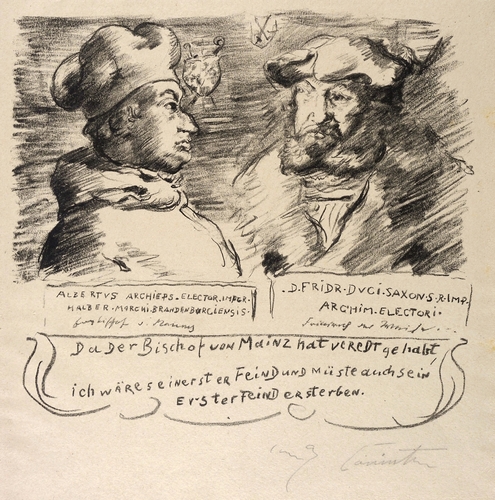 ALBERTVS ARCHIEPS. ELECTOR. IMPER.
HALBER. MARCHI. BRANDENBÜRGENSIS.
Erzbischof v. Mainz
.D. FRIDR. DVCI. SAXONS. R. IMP.
ARCHIM. ELECTORI.
Da Der Bischof von Mainz hat veredt gehabt,
ich wäre sein erster Feind und müste auch sein
erster Feind ersterben.